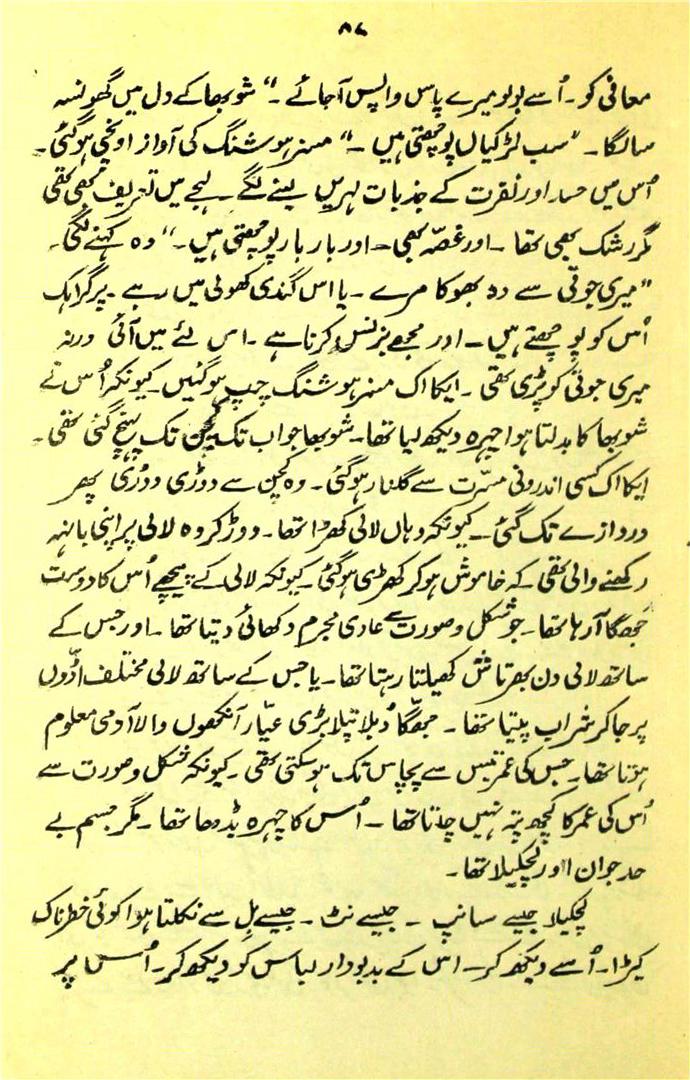 ۵۸
معافی کو۔ اُسے بولو میرے پاس واپس آ جائے۔“ شوبھا کے دل میں گھونسہ
سا لگا۔ ”سب لڑکیاں پوچھتی ہیں۔“ مسز ہوشنگ کی آواز اونچی ہو گئی۔
اُس میں حسد اور نفرت کے جذبات لہریں لینے لگے۔ لہجے میں تعریف بھی تھی
مگر رشک بھی تھا۔ اور غصّہ بھی۔ اور بار بار پوچھتی ہیں۔“ وہ کہنے لگی۔
”میری جوتی سے وہ بھوکا مرے۔ یا اس گندی کھولی میں رہے۔ پر گراہک
اُس کو پوچھتے ہیں۔ اور مجھے بزنس کرنا ہے۔ اس لئے میں آئی ورنہ
میری جوتی کو پڑی تھی۔ ایکا اک مسز ہوشنگ چپ ہو گئیں۔ کیونکہ اُس نے
شوبھا کا بدلتا ہوا چہرہ دیکھ لیا تھا۔ شوبھا جو اب تک کچن تک پہنچ گئی تھی۔
ایکا اک کسی اندرونی مسرّت سے گلنار ہو گئی۔ وہ کچن سے دوڑی دوڑی پھر
دروازے تک گئی۔ کیونکہ وہاں لالی کھڑا تھا۔ دوڑ کر وہ لالی پر اپنی بانہہ
رکھنے والی تھی کہ خاموش ہو کر کھڑی ہو گئی۔ کیونکہ لالی کے پیچھے اُس کا دوست
جھگا آ رہا تھا۔ جو شکل و صورت سے عادی مجرم دکھائی دیتا تھا۔ اور جس کے
ساتھ لالی دن بھر تاش کھیلتا رہتا تھا۔ یا جس کے ساتھ لالی مختلف اڈّوں
پر جا کر شراب پیتا تھا۔ جھگّا دُبلا پتلا بڑی عیّار آنکھوں والا آدمی معلوم
ہوتا تھا۔ جس کی عمر تیس سے پچاس تک ہو سکتی تھی۔ کیونکہ شکل و صورت سے
اُس کی عمر کا کچھ پتہ نہیں چلتا تھا۔ اُس کا چہرہ بڈھا تھا۔ مگر جسم بے
حد جوان اور لچکیلا تھا۔
لچکیلا جیسے سانپ۔ جیسے نٹ۔ جیسے بِل سے نکلتا ہوا کوئی خطرناک
کیڑا۔ اُسے دیکھ کر۔ اس کے بدبودار لباس کو دیکھ کر۔ اُس پر